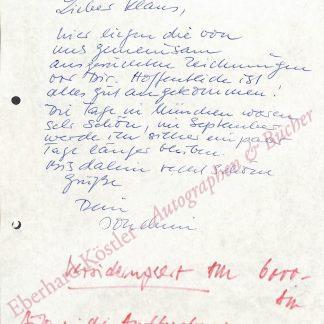 Lieber Klaus,
hier liegen die von
uns gemeinsam
ausgesuchten Zeichnungen
vor Dir. Hoffentlich ist
alles gut angekommen!
Die Tage in München waren
sehr schön, im September
werde ich sicher ein paar
Tage länger bleiben.
Bis dahin recht
Grüße
Dein
6000.-
Eberhard Köstler Autographen & Bücher